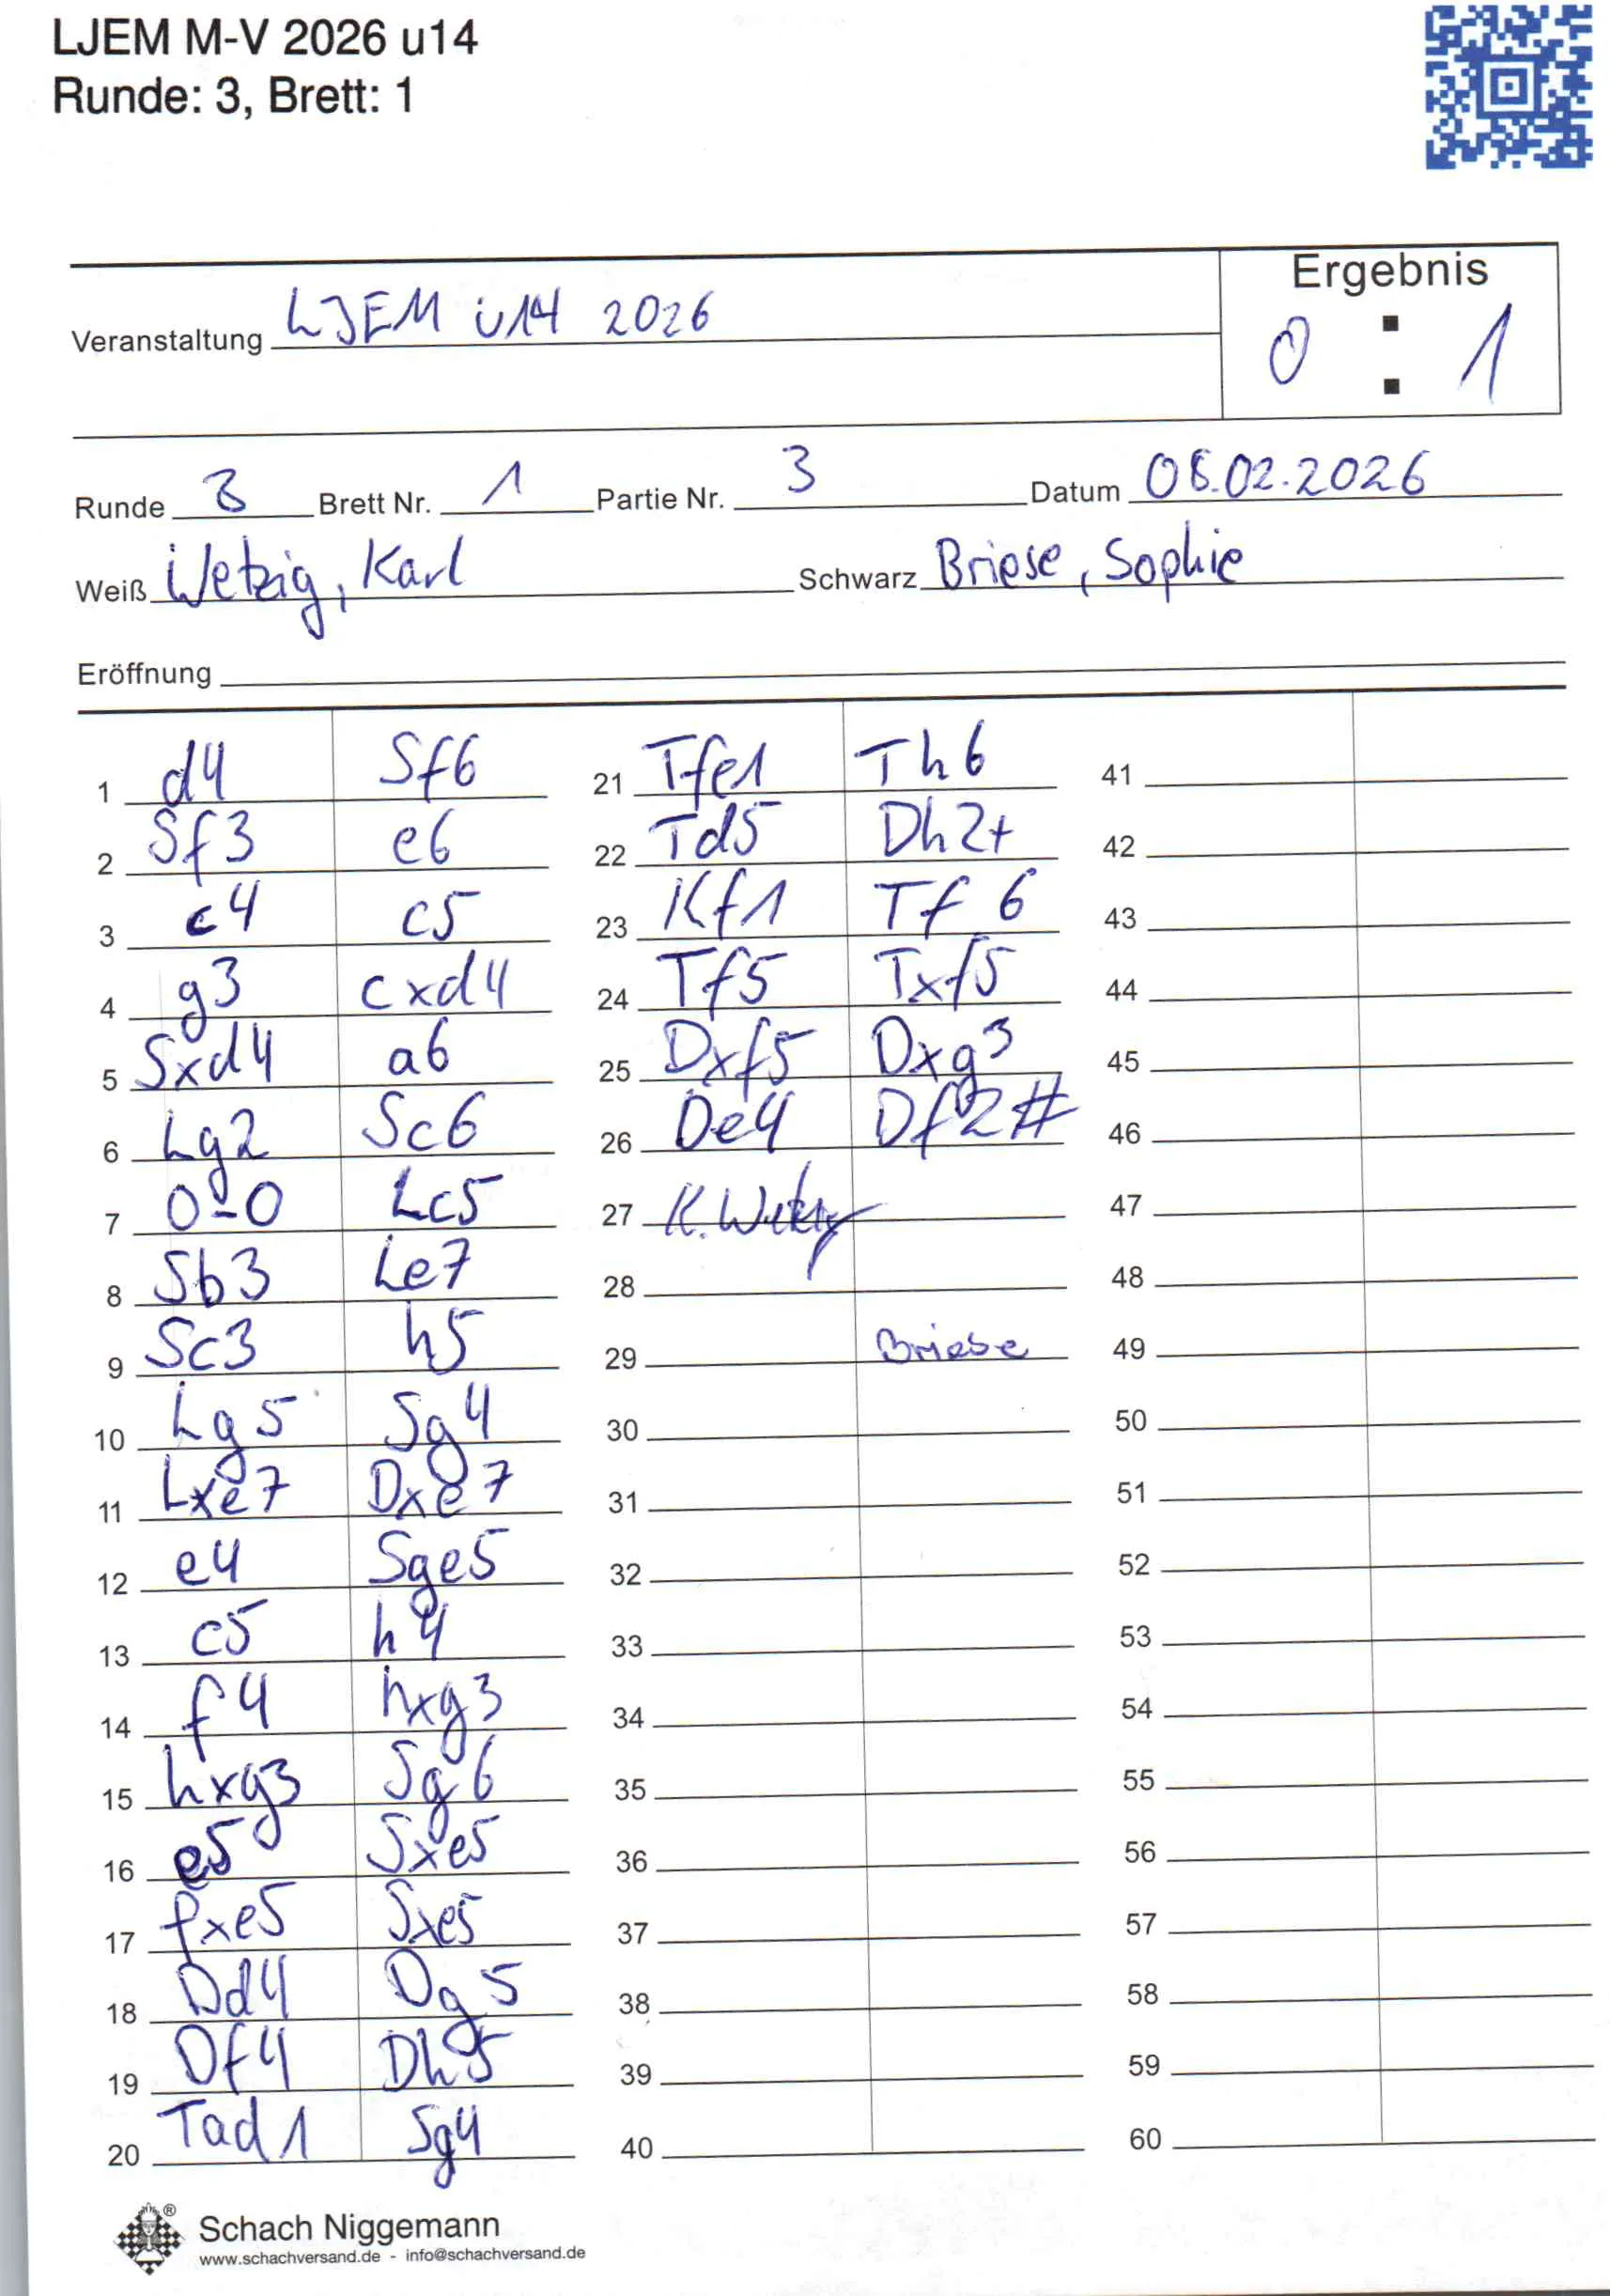 LJEM M-V 2026 u14
Runde: 3, Brett: 1
Ergebnis
Veranstaltung LJEM ü14 2026
0 : 1
Runde 3 Brett Nr. 1 Partie Nr. 3 Datum 08.02.2026
Weiß Wetzig, Karl Schwarz Briese, Sophie
Eröffnung
1 d4 Sf6
2 Sf3 e6
3 c4 c5
4 g3 cxd4
5 Sxd4 a6
6 Lg2 Sc6
7 0-0 Lc5
8 Sb3 Le7
9 Sc3 h5
10 Lg5 Sg4
11 Lxe7 Dxe7
12 e4 Sge5
13 c5 h4
14 f4 hxg3
15 hxg3 Sg6
16 e5 Sxe5
17 fxe5 Sxe5
18 Dd4 Dg5
19 Df4 Dh5
20 Tad1 Sg4
21 Tfe1 Th6
22 Td5 Dh2+
23 Kf1 Tf6
24 Tf5 Txf5
25 Dxf5 Dxg3
26 De4 Df2#
27 K. Wetzig
28
29 Briese
30
31
32
33
34
35
36
37
38
39
40
41
42
43
44
45
46
47
48
49
50
51
52
53
54
55
56
57
58
59
60
Schach Niggemann
www.schachversand.de - info@schachversand.de